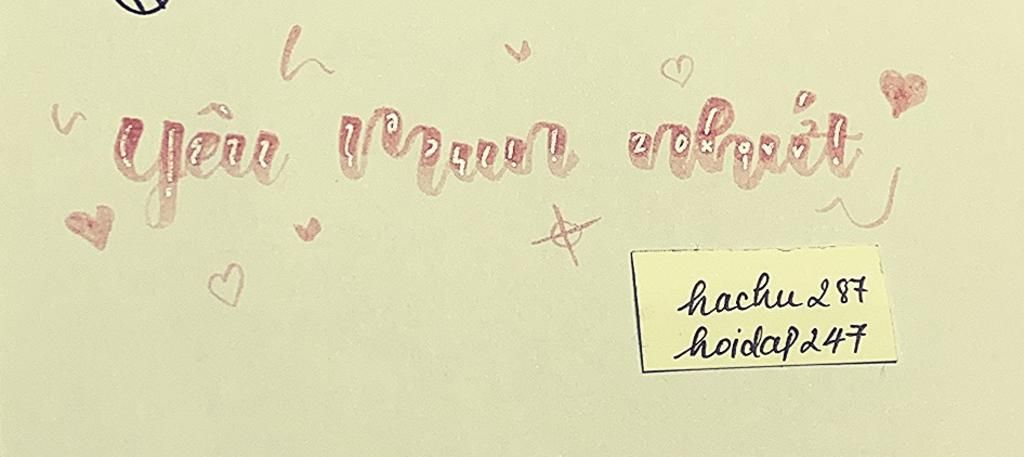 yêu Mun nhất
hachu287
hoidap247